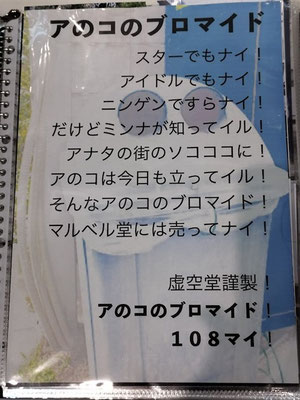 アのコのブロマイド
スターでもナイ！
アイドルでもナイ！
ニンゲンですらナイ！
だけどミンナが知ってイル！
アナタの街のソコココに！
アのコは今日も立ってイル！
そんなアのコのブロマイド！
マルベル堂には売ってナイ！
虚空堂謹製！
アのコのブロマイド！
１０８マイ！